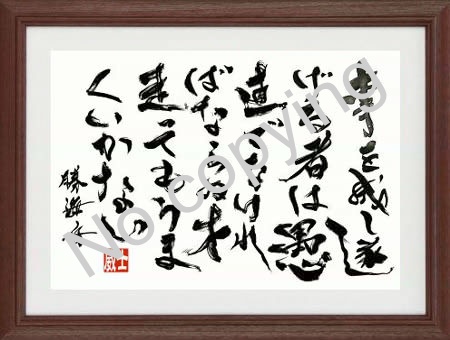 事を成し遂
げる者は愚
直でなけれ
ばならぬ才
走ってはうま
くいかない
勝海舟
No copying